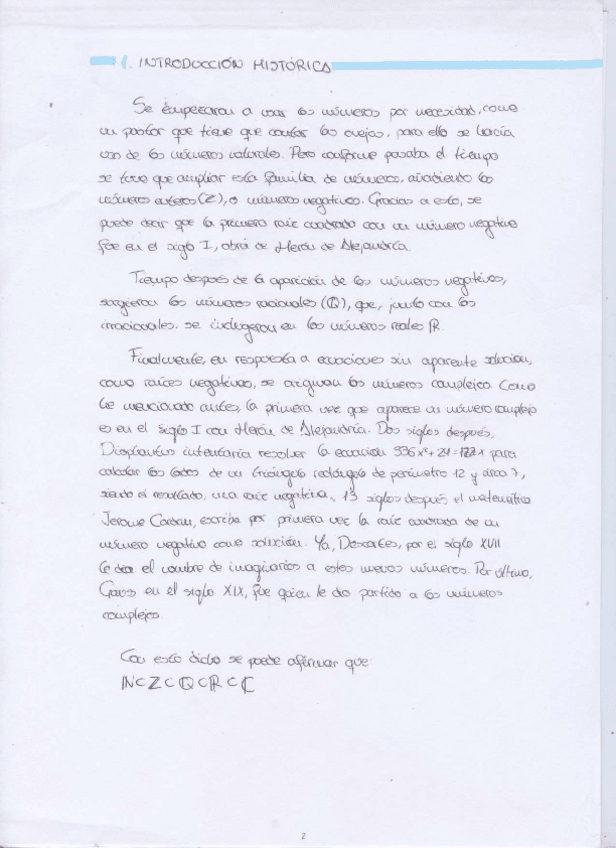 1. INTRODUCCIÓN HISTÓRICA
Se empezaron a usar los números por necesidad, como
un pastor que tiene que contar las ovejas, para ello se hacía
uso de los números naturales. Pero conforme pasaba el tiempo
se tuvo que ampliar esta familia de números, añadiendo los
números enteros (Z), o números negativos. Gracias a esto, se
puede decir que la primera raíz cuadrada con un número negativo
fue en el siglo I, obra de Herón de Alejandría.
Tiempo después de la aparición de los números negativos,
surgieron los números racionales (Q), que, junto con los
irracionales, se incluyeron en los números reales R.
Finalmente, en respuesta a ecuaciones sin aparente solución,
como raíces negativas, se originan los números complejos. Como
he mencionado antes, la primera vez que aparece un número complejo
es en el siglo I con Herón de Alejandría. Dos siglos después,
Diophantus intentaría resolver la ecuación 336x²+24=172x para
calcular los lados de un triángulo rectángulo de perímetro 12 y área 7,
siendo el resultado, una raíz negativa. 13 siglos después el matemático
Jerome Cardan, escribe por primera vez la raíz cuadrada de un
número negativo como solución. Ya, Descartes, por el siglo XVII
le da el nombre de imaginarios a estos nuevos números. Por último,
Gauss en el siglo XIX, fue quien le dio partido a los números
complejos.
Con esto dicho se puede afirmar que
N⊂Z⊂Q⊂R⊂C
2